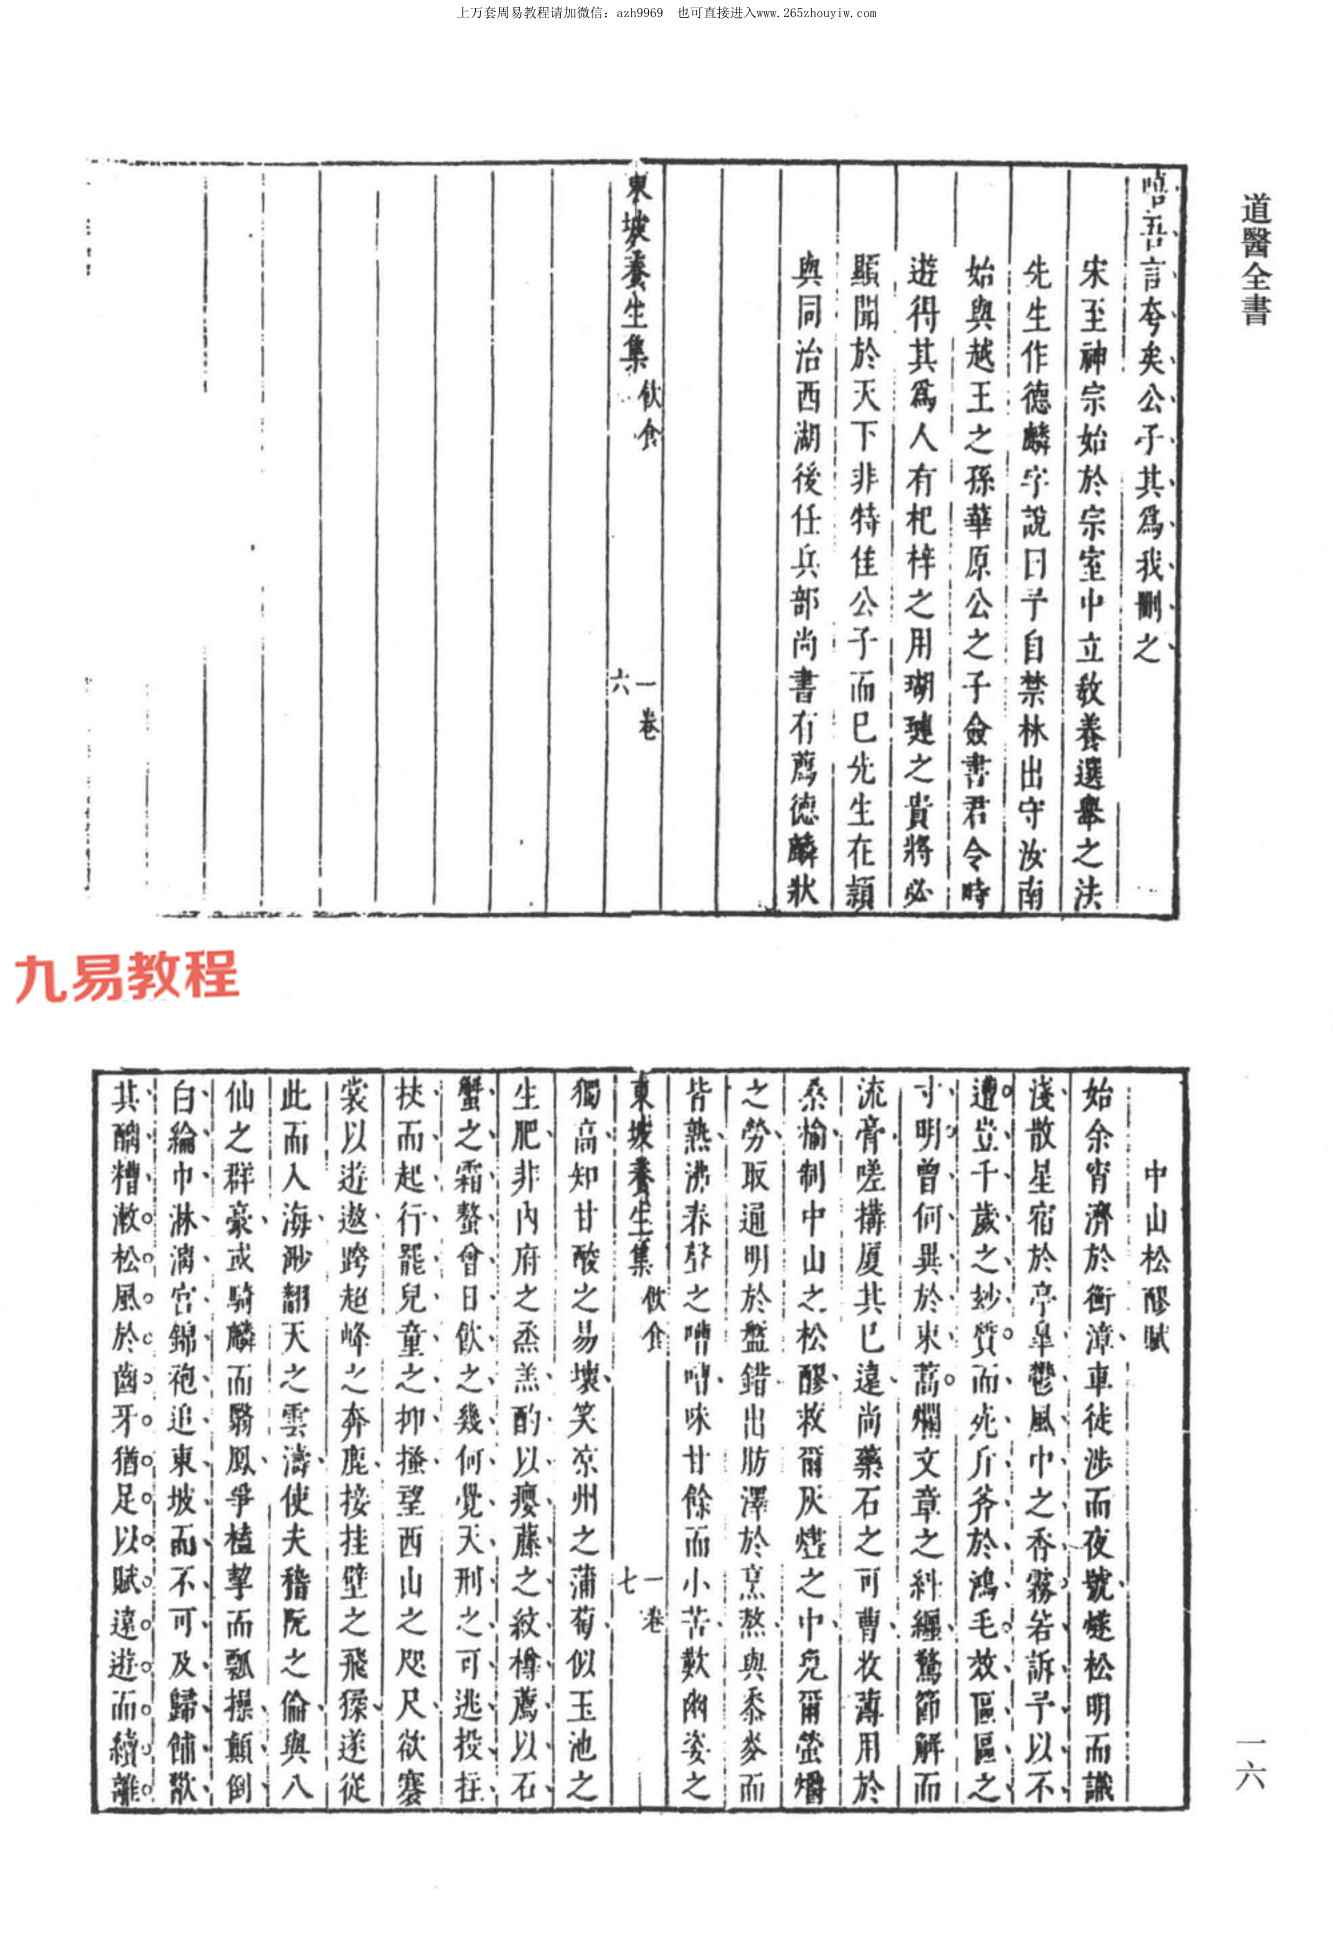 上万套周易教程请加微信：azh9969　也可直接进入www.265zhouyiw.com
道醫全書
嘻吾言夸矣公子其爲我刪之
宋至神宗始於宗室中立教養選舉之法
先生作德麟字說曰予自禁林出守汝南
始與越王之孫華原公之子僉書君令時
遊得其爲人有杞梓之用瑚璉之貴將必
顯聞於天下非特佳公子而已先生在頴
與同治西湖後任兵部尚書有薦德麟狀
東坡養生集 飲食 一卷 六
九易教程
中山松醪賦
始余宵濟於衡漳車徒涉而夜號燧松明而識
淺散星宿於亭皋鬱風中之香霧若訴予以不
遭豈千歲之妙質而死斤斧於鴻毛效區區之
寸明曾何異於束蒿爛文章之糾纆驚節解而
流膏嗟搆厦其已遠尚藥石之可曹收薄用於
桑榆制中山之松醪救爾灰燼之中免爾螢爝
之勞取通明於盤錯出肪澤於烹熬與黍麥而
皆熟沸春聲之嘈嘈味甘餘而小苦歎幽姿之
東坡養生集 飲食 一卷 七
獨高知甘酸之易壞笑凉州之蒲萄似玉池之
生肥非內府之烝羔酌以癭藤之紋樽薦以石
蟹之霜螯曾日飲之幾何覺天刑之可逃投拄
杖而起行罷兒童之抑搔望西山之咫尺欲褰
裳以遊遨跨超峰之奔鹿接挂壁之飛猱遂從
此而入海渺翻天之雲濤使夫嵇阮之倫與八
仙之群豪或騎麟而翳鳳爭榼挈而瓢操顛倒
白綸巾淋漓宮錦袍追東坡而不可及歸餔歠
其醨糟漱松風於齒牙猶足以賦遠遊而續離
一六